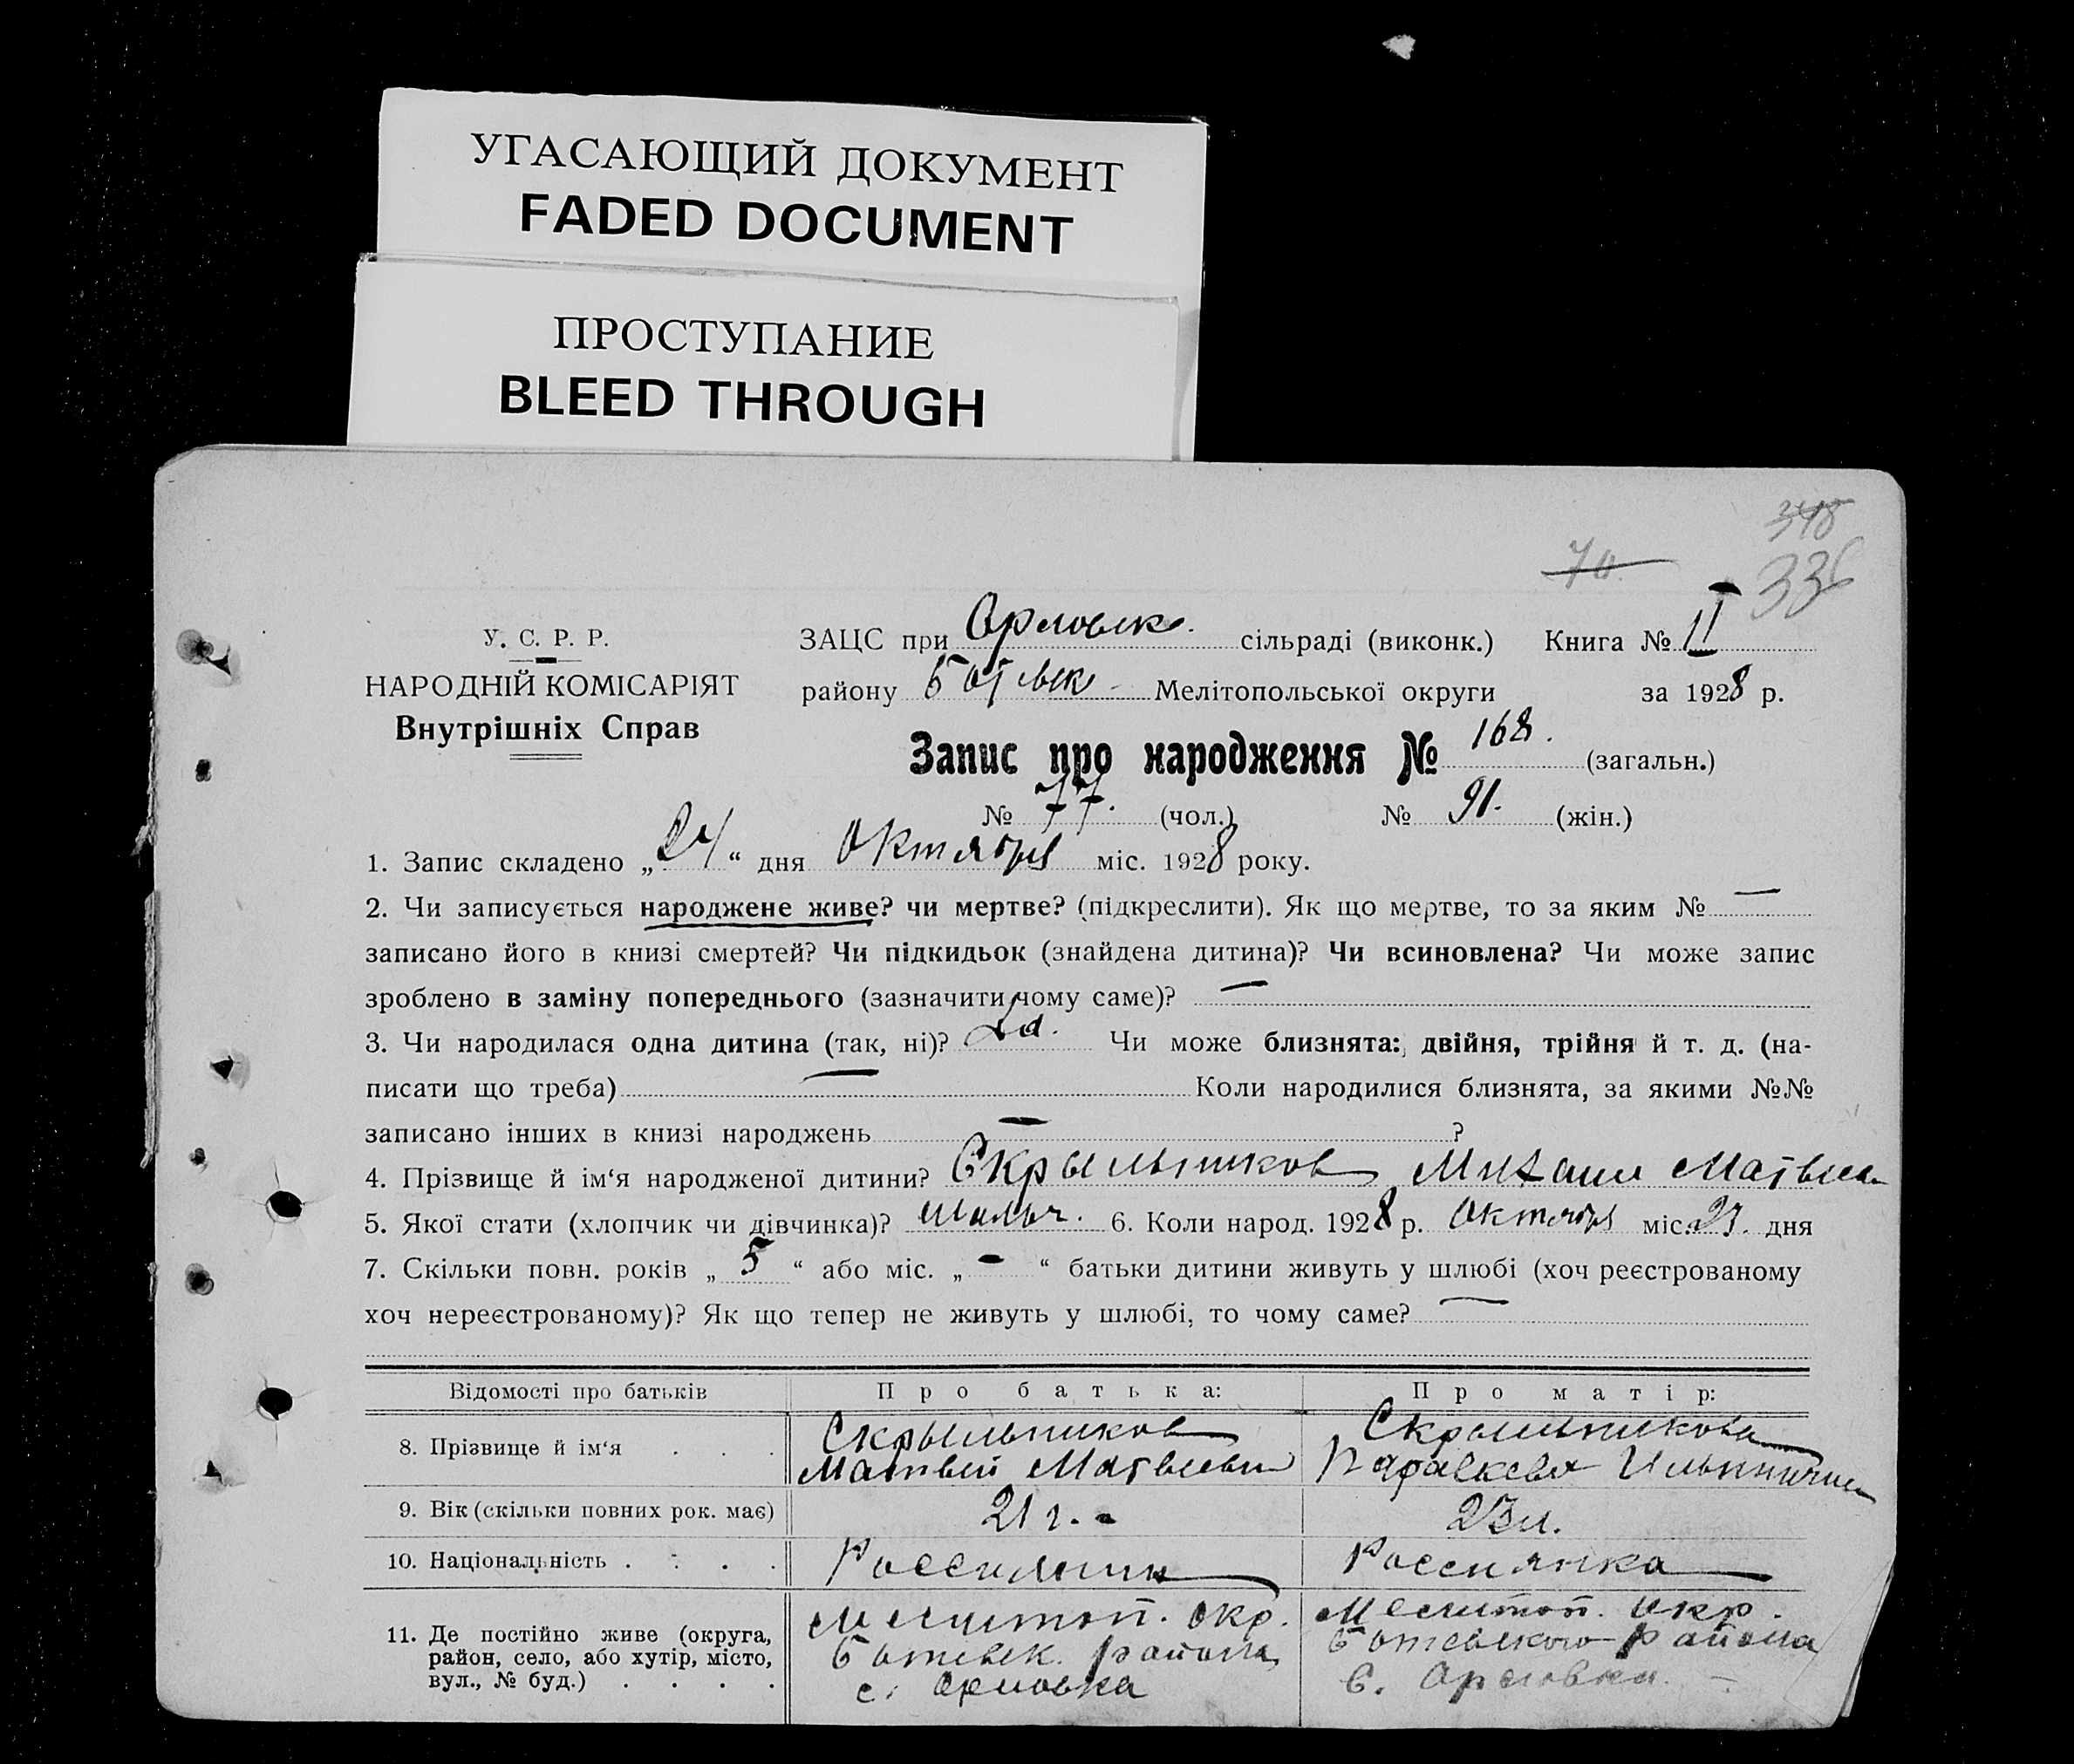 УГАСАЮЩИЙ ДОКУМЕНТ
FADED DOCUMENT
ПРОСТУПАНИЕ
BLEED THROUGH
348
70.
336
У. С. Р. Р.
НАРОДНІЙ КОМІСАРІЯТ
Внутрішніх Справ
ЗАЦС при Орловск. сільраді (виконк.) Книга № II
району Ботьевск Мелітопольської округи за 1928 р.
Запис про народження № 168. (загальн.)
№ 77. (чол.) № 91. (жін.)
1. Запис складено „24“ дня Октября міс. 1928 року.
2. Чи записується народжене живе? чи мертве? (підкреслити). Як що мертве, то за яким № —
записано його в книзі смертей? Чи підкидьок (знайдена дитина)? Чи всиновлена? Чи може запис
зроблено в заміну попереднього (зазначити чому саме)? —
3. Чи народилася одна дитина (так, ні)? Да. Чи може близнята: двійня, трійня й т. д. (на-
писати що треба) — Коли народилися близнята, за якими №№
записано інших в книзі народжень — ?
4. Прізвище й ім‘я народженої дитини? Скрыльников Михаил Матвеев
5. Якої стати (хлопчик чи дівчинка)? мальч. 6. Коли народ. 1928 р. Октября міс. 23. дня
7. Скільки повн. років „5“ або міс. „-“ батьки дитини живуть у шлюбі (хоч реєстрованому
хоч нереєстрованому)? Як що тепер не живуть у шлюбі, то чому саме? —
Відомості про батьків Про батька: Про матір:
8. Прізвище й ім‘я . . . Скрыльников Скрыльникова
Матвей Матвеевич Параскева Ильинична
9. Вік (скільки повних рок. має) 21 г. - 23 л.
10. Національність . . . . Россиянин Россиянка
11. Де постійно живе (округа, Мелитоп. окр. Мелитоп. окр.
район, село, або хутір, місто, Ботевск. района Ботевского района
вул., № буд.) . . . . с. Орловка с. Орловка. -